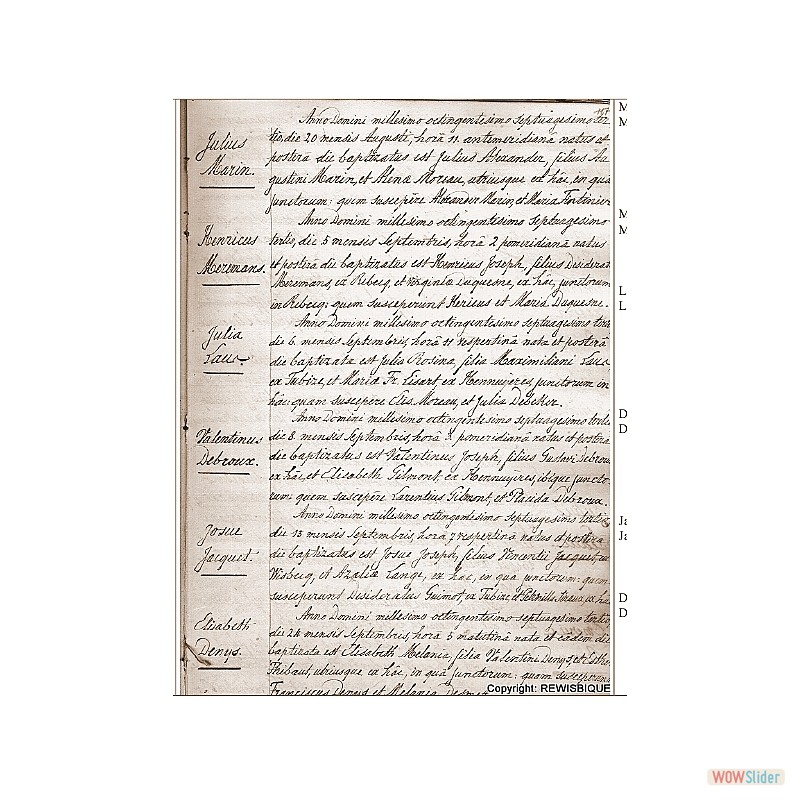 Anno Domini millesimo octingentesimo septuagesimo ter-
tio, die 20 mensis Augusti, horâ 11 antemeridianâ natus et
Julius
Marin.
posterâ die baptizatus est Julius Alexander, filius Au-
gustini Marin, et Alena Moreau, utriusque ex hâc, in quâ
junctorum: quem suscepêre Alexander Marin, et Maria
Anno Domini millesimo octingentesimo septuagesimo
Henricus
Meremans.
tertio, die 5 mensis Septembris, horâ 2 pomeridianâ natus
et posterâ die baptizatus est Henricus Joseph, filius
Meremans, ex Rebecq, et Virginia Duquesne, ex hâc, junctorum
in Rebecq: quem susceperunt Hericus et Maria Duquesne.
Anno Domini millesimo octingentesimo septuagesimo
Julia
Laus
die 6 mensis Septembris, horâ 11 vespertinâ nata et posterâ
die baptizata est Julia Rosina, filia Maximiliani Laus
ex Tubize, et Maria Fr. Lisart, ex Hennuyeres, junctorum in
hâc: quam suscepere Elis. Moreau, et Julia Debecker.
Anno Domini millesimo octingentesimo septuagesimo tertio
Valentinus
Debroux.
die 8 mensis Septembris, horâ pomeridianâ natus et posterâ
die baptizatus est Valentinus Joseph, filius Gustavi Debroux
ex hâc, et Elisabeth Gilmont, ex Hennuyeres, ibique juncto-
rum: quem suscepêre Laurentius Gilmont, et Placida Debroux.
Anno Domini millesimo octingentesimo septuagesimo tertio
Josue
Jacquet.
die 13 mensis Septembris, horâ 7 vespertinâ natus et posterâ
die baptizatus est Josue Joseph, filius Vincentii Jacquet, ex
Wisbecq, et Azalia Lange, ex hâc, in qua junctorum: quem
susceperunt Desideratus Guimot, ex Tubize, et ex hâc
Anno Domini millesimo octingentesimo septuagesimo tertio
Elisabeth
Denys.
die 24 mensis Septembris, horâ 5 matutinâ nata et eadem die
baptizata est Elisabeth Melania, filia Valentini Denys, et
Thibaut, utriusque ex hâc, in quâ junctorum: quam susceperunt
Franciscus Denys et Melania
Copyright: REWISBIQUE
M
M
M
M
L
L
D
D
Ja
Ja
D
D
WOWSlider